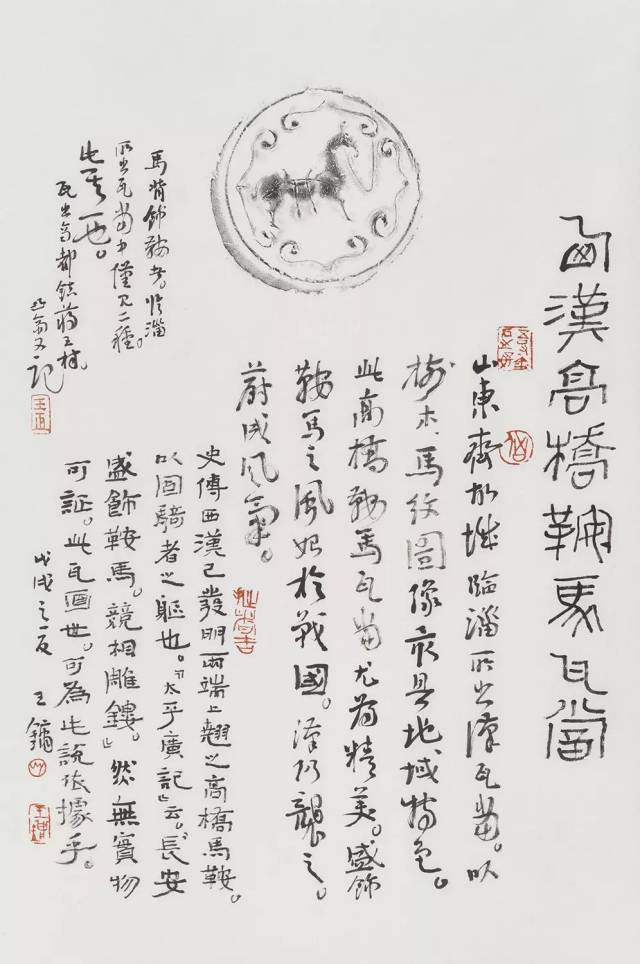 西漢高橋鞍馬瓦當
山東齊故城臨淄所出漢瓦當。以
樹木、馬紋圖像最具地域特色。
此高橋鞍馬瓦當尤為精美。盛飾
鞍馬之風始於戰國。漢仍襲之。
蔚成風氣。
史傳西漢已發明兩端上翹之高橋馬鞍。
以固騎者之軀也。『太平廣記』云。「長安
盛飾鞍馬。競相雕鏤。」然無實物
可証。此瓦面世。可為此說依據乎。
戊戌之夏 王鏞
馬背飾鞍者。臨淄
所出瓦當中僅見二種。
此其一也。
瓦出齊都鎮蔣王村。
又記